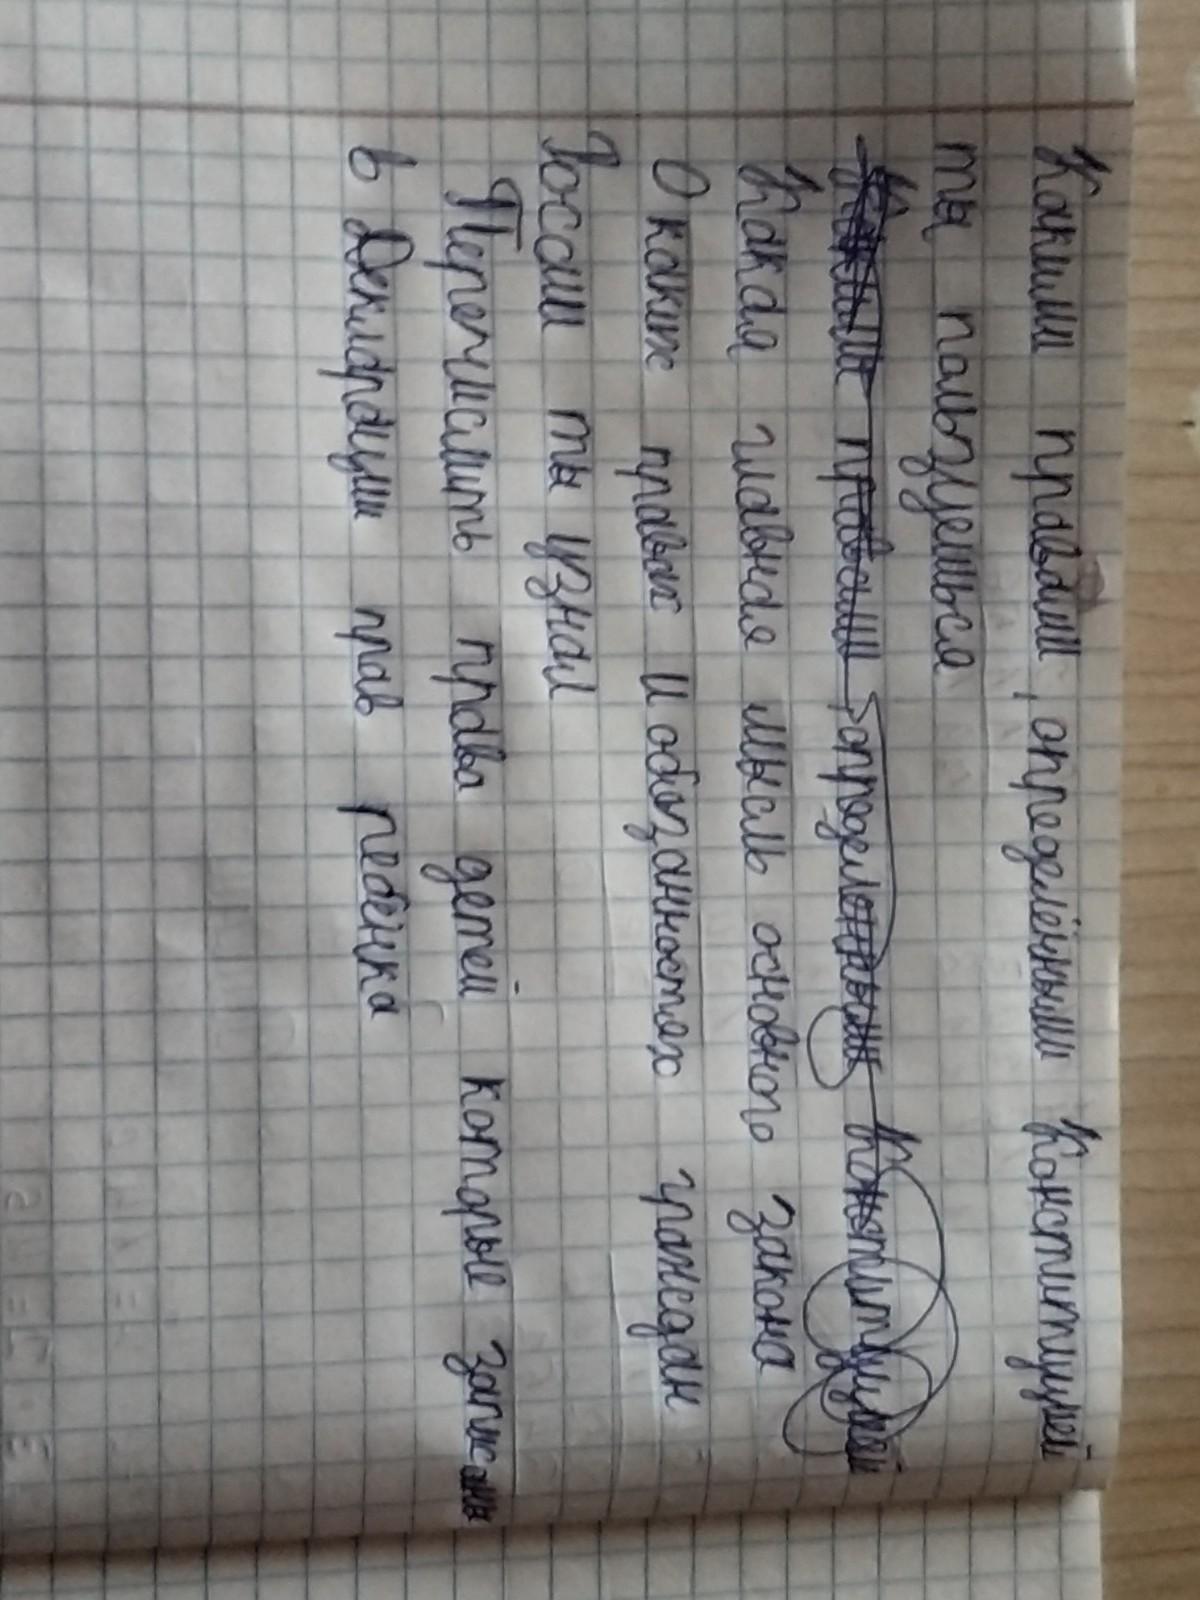 Какими правами, определёнными Конституцией
ты пользуешься
Какими правами, определённыими Конституцией
Какая главная мысль основного закона
О каких правах и обязанностях граждан
Росии ты узнал
Перечислить права детей которые записаны
в Декларации прав ребёнка